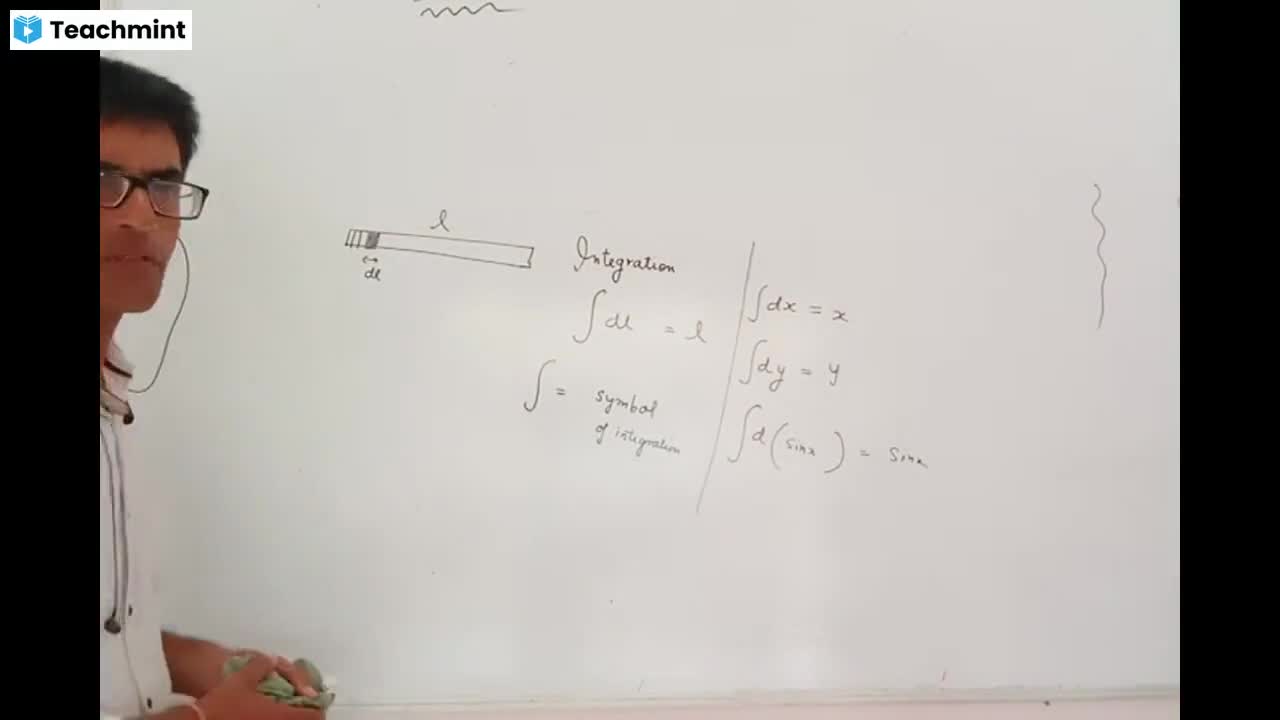 Teachmint
l
dl
Integration
∫dl = l
∫ = symbol
of integration
∫dx = x
∫dy = y
∫d(sinx) = sinx